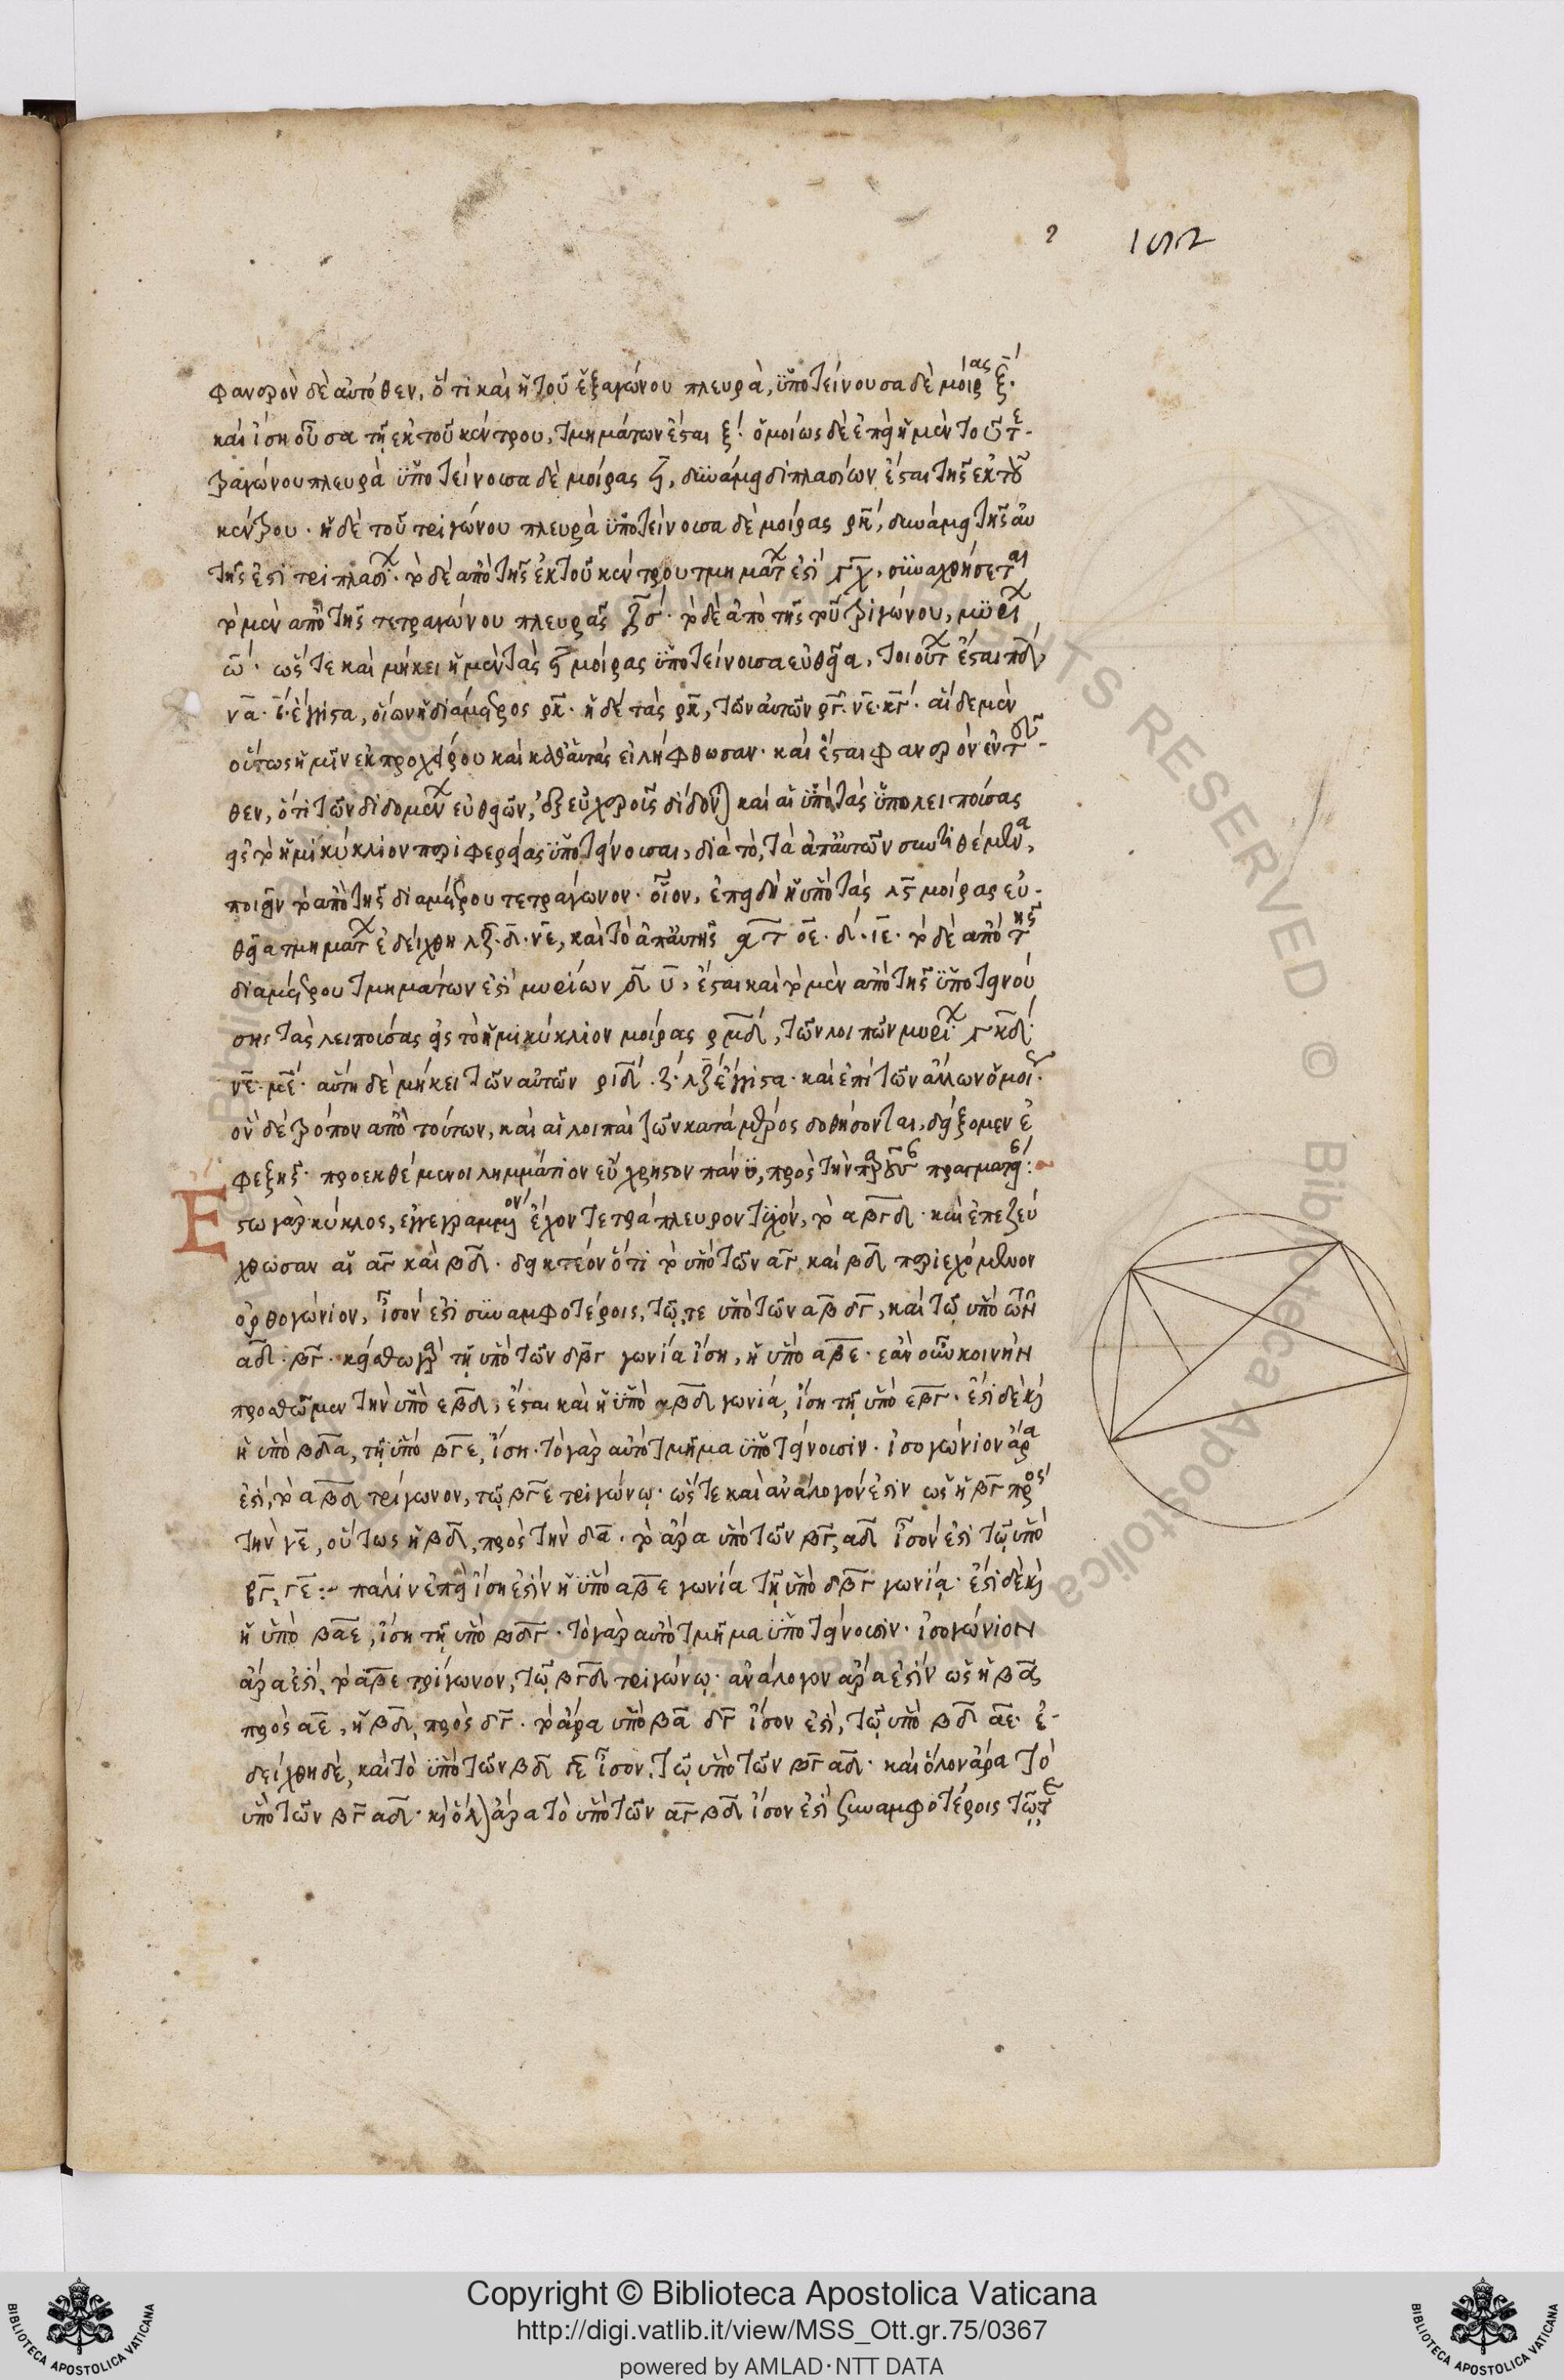 182
φανερὸν δὲ αὐτόθεν, ὅτι καὶ ἡ τοῦ ἑξαγώνου πλευρὰ, ὑποτείνουσα δὲ μοίρας ξ̄.
καὶ ἴση οὖσα τῇ ἐκ τοῦ κέντρου, τμημάτων ἐστὶ ξ. ὁμοίως δὲ ἐπεὶ ἡ μὲν τοῦ τε-
τραγώνου πλευρὰ ὑποτείνουσα δὲ μοίρας ϟ, δυνάμει διπλασίων ἐστὶ τῆς ἐκ τοῦ
κέντρου. ἡ δὲ τοῦ τριγώνου πλευρὰ ὑποτείνουσα δὲ μοίρας ρκ, δυνάμει τῆς αὐ
τῆς ἐστὶ τριπλασι. τὸ δὲ ἀπὸ τῆς ἐκ τοῦ κέντρου τμηματ ἐστὶ γχ, συναχθήσεται
τὸ μὲν ἀπὸ τῆς τετραγώνου πλευρᾶς ζς. τὸ δὲ ἀπὸ τῆς τοῦ τριγώνου, μυρι
ω. ὥστε καὶ μήκει ἡ μὲν τὰς ϟ μοίρας ὑποτείνουσα εὐθεῖα, τοιουτ ἐστὶ πδ,
να. ι. ἔγγιστα, οἵων ἡ διάμετρος ρκ. ἡ δὲ τὰς ρκ, τῶν αὐτῶν ργ. νε. κγ. αἵδε μὲν
οὕτως ἡμῖν ἐκ προχείρου καὶ καθ' αὑτὰς εἰλήφθωσαν. καὶ ἔσται φανερὸν ἐντεῦ-
θεν, ὅτι τῶν διδομεν εὐθειῶν, ἐξ εὐχεροῦς δίδονται καὶ αἱ ὑπὸ τὰς ὑπολειπούσας
εἰς τὸ ἡμικύκλιον περιφερείας ὑποτείνουσαι, διὰ τὸ, τὰ ἀπ' αὐτῶν συντιθέμενα,
ποιεῖν τὸ ἀπὸ τῆς διαμέτρου τετράγωνον. οἷον, ἐπειδὴ ἡ ὑπὸ τὰς λς μοίρας εὐ-
θεῖα τμηματ ἐδείχθη λζ. δ. νε, καὶ τὸ ἀπ' αὐτῆς ατ οε. δ. ιε. τὸ δὲ ἀπὸ τῆς
διαμέτρου τμημάτων ἐστὶ μυρίων δ υ, ἔσται καὶ τὸ μὲν ἀπὸ τῆς ὑποτεινού
σης τὰς λειπούσας εἰς τὸ ἡμικύκλιον μοίρας ρμδ, τῶν λοιπῶν μυρι. γκδ.
νε. με. αὕτη δὲ μήκει τῶν αὐτῶν ριδ. ζ. λζ ἔγγιστα. καὶ ἐπὶ τῶν ἄλλων ὁμοι.
ὃν δὲ τρόπον ἀπὸ τούτων, καὶ αἱ λοιπαὶ τῶν κατὰ μέρος δοθήσονται, δείξομεν ἐ
φεξῆς. προεκθέμενοι λημμάτιον εὔχρηστον πάνυ, πρὸς τὴν παροῦσ πραγματει:
Ἔστω γὰρ κύκλος, ἐγγεγραμμένον ἔχον τετράπλευρον τυχόν, τὸ αβγδ. καὶ ἐπεζεύ
χθωσαν αἱ αγ καὶ βδ. δεικτέον ὅτι τὸ ὑπὸ τῶν αγ καὶ βδ περιεχόμενον
ὀρθογώνιον, ἴσον ἐστὶ συναμφοτέροις, τῷ τε ὑπὸ τῶν αβ δγ, καὶ τῷ ὑπὸ τῶν
αδ. βγ. κείσθω γὰρ τῇ ὑπὸ τῶν δβγ γωνία ἴση, ἡ ὑπὸ αβε. ἐὰν οὖν κοινὴν
προσθῶμεν τὴν ὑπὸ εβδ, ἔσται καὶ ἡ ὑπὸ αβδ γωνία, ἴση τῇ ὑπὸ εβγ. ἐστὶ δὲ καὶ
ἡ ὑπὸ βδα, τῇ ὑπὸ βγε, ἴση. τὸ γὰρ αὐτὸ τμῆμα ὑποτείνουσιν. ἰσογώνιον ἄρα
ἐστὶ, τὸ αβδ τρίγωνον, τῷ βγε τριγώνῳ. ὥστε καὶ ἀνάλογόν ἐστιν ὡς ἡ βγ πρὸς
τὴν γε, οὕτως ἡ βδ, πρὸς τὴν δα. τὸ ἄρα ὑπὸ τῶν βγ, αδ ἴσον ἐστὶ τῷ ὑπὸ
βγ, γε: πάλιν ἐπεὶ ἴση ἐστὶν ἡ ὑπὸ αβε γωνία τῇ ὑπὸ δβγ γωνίᾳ. ἐστὶ δὲ καὶ
ἡ ὑπὸ βαε, ἴση τῇ ὑπὸ βδγ. τὸ γὰρ αὐτὸ τμῆμα ὑποτείνουσιν. ἰσογώνιον
ἄρα ἐστὶ, τὸ αβε τρίγωνον, τῷ βγδ τριγώνῳ. ἀνάλογον ἄρα ἐστὶν ὡς ἡ βα
πρὸς αε, ἡ βδ, πρὸς δγ. τὸ ἄρα ὑπὸ βα δγ ἴσον ἐστὶ, τῷ ὑπὸ βδ αε. ἐ-
δείχθη δὲ, καὶ τὸ ὑπὸ τῶν βδ γε ἴσον, τῷ ὑπὸ τῶν βγ αδ. καὶ ὅλον ἄρα τὸ
ὑπὸ τῶν βγ αδ. καὶ ὅλον ἄρα τὸ ὑπὸ τῶν αγ βδ ἴσον ἐστὶ συναμφοτέροις τῷ τε
Copyright © Biblioteca Apostolica Vaticana
http://digi.vatlib.it/view/MSS_Ott.gr.75/0367
powered by AMLAD·NTT DATA
BIBLIOTECA APOSTOLICA VATICANA
BIBLIOTECA APOSTOLICA VATICANA